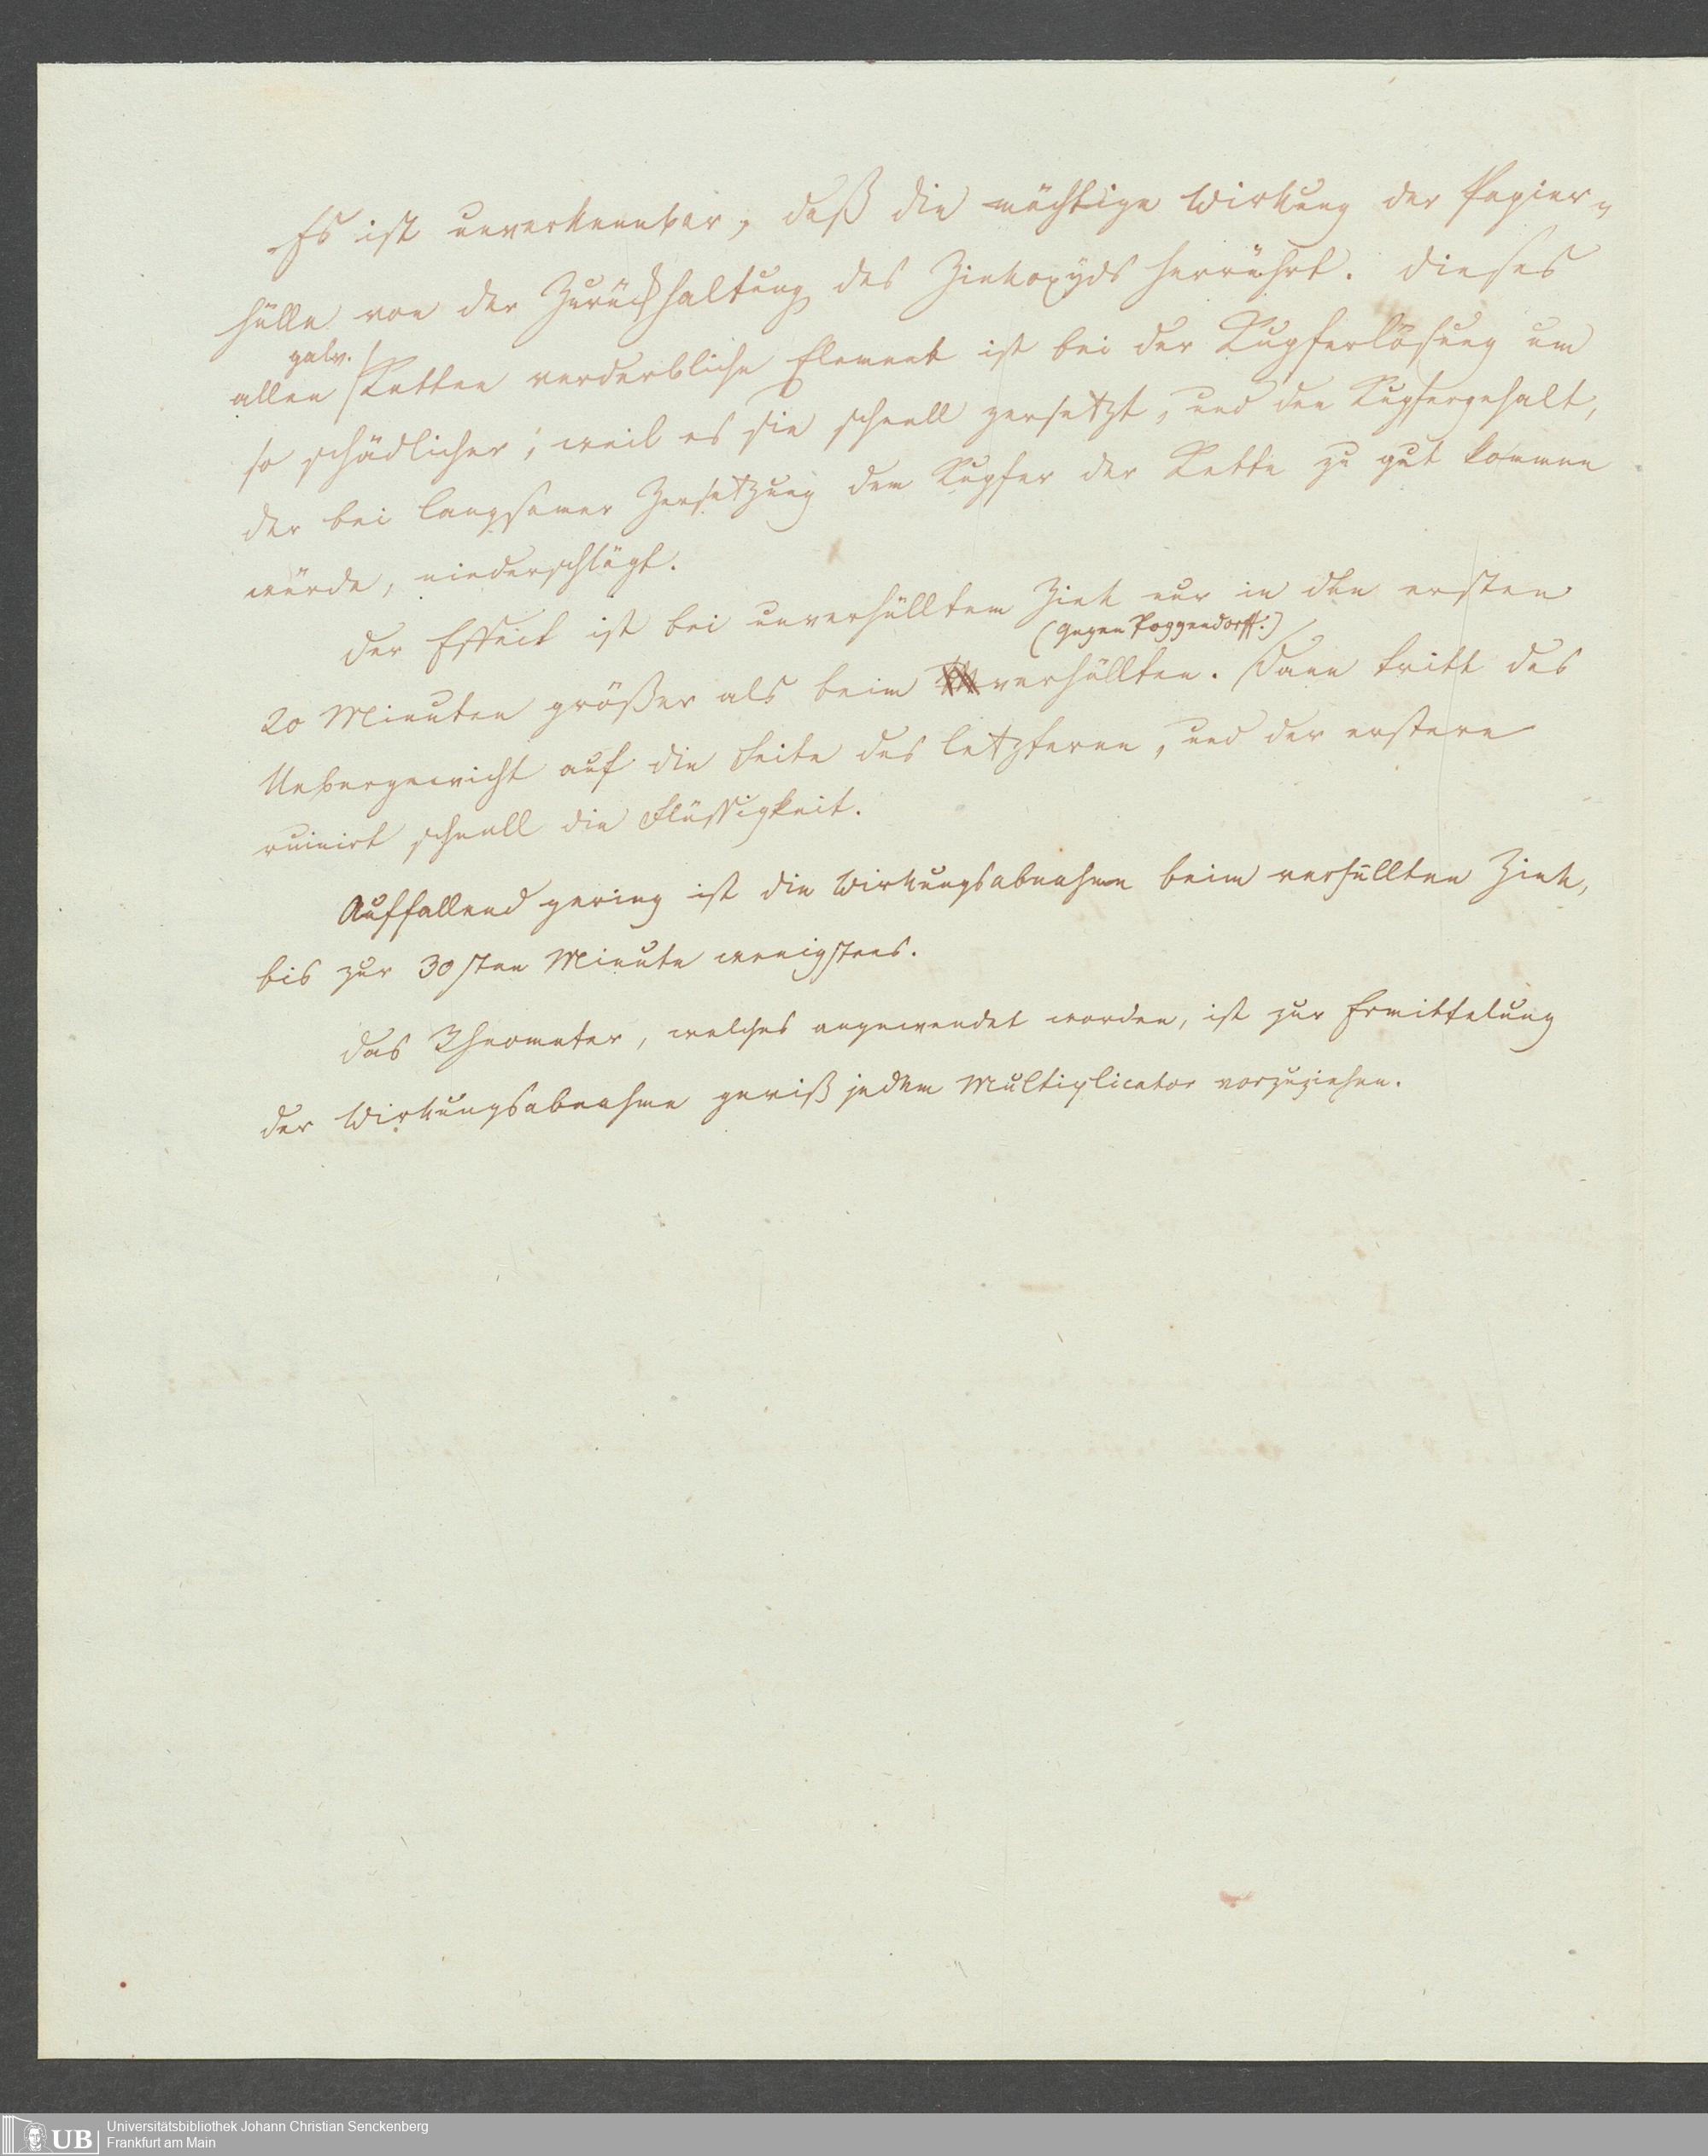 Es ist unverkennbar, daß die mächtige Wirkung der Papier-
hülle von der Zurückhaltung des Zinkoxyds herrührt. Dieses
galv.
allen Ketten verderbliche Element ist bei der Kupferlösung um
so schädlicher, weil es sie schnell zersetzt, und den Kupfergehalt,
der bei langsamer Zersetzung dem Kupfer der Kette zu gut kommen
würde, niederschlägt.
Der Effect ist bei unverhülltem Zink nur in den ersten
(gegen Poggendorff.)
20 Minuten größer als beim verhüllten. Dann tritt das
Uebergewicht auf die Seite des letzteren, und der erstere
ruinirt schnell die Flüssigkeit.
Auffallend gering ist die Wirkungsabnahme beim verhüllten Zink,
bis zur 30sten Minute wenigstens.
Das Rheometer, welches angewendet worden, ist zur Ermittelung
der Wirkungsabnahme gewiß jedem Multiplicator vorzuziehen.
UB
Universitätsbibliothek Johann Christian Senckenberg
Frankfurt am Main